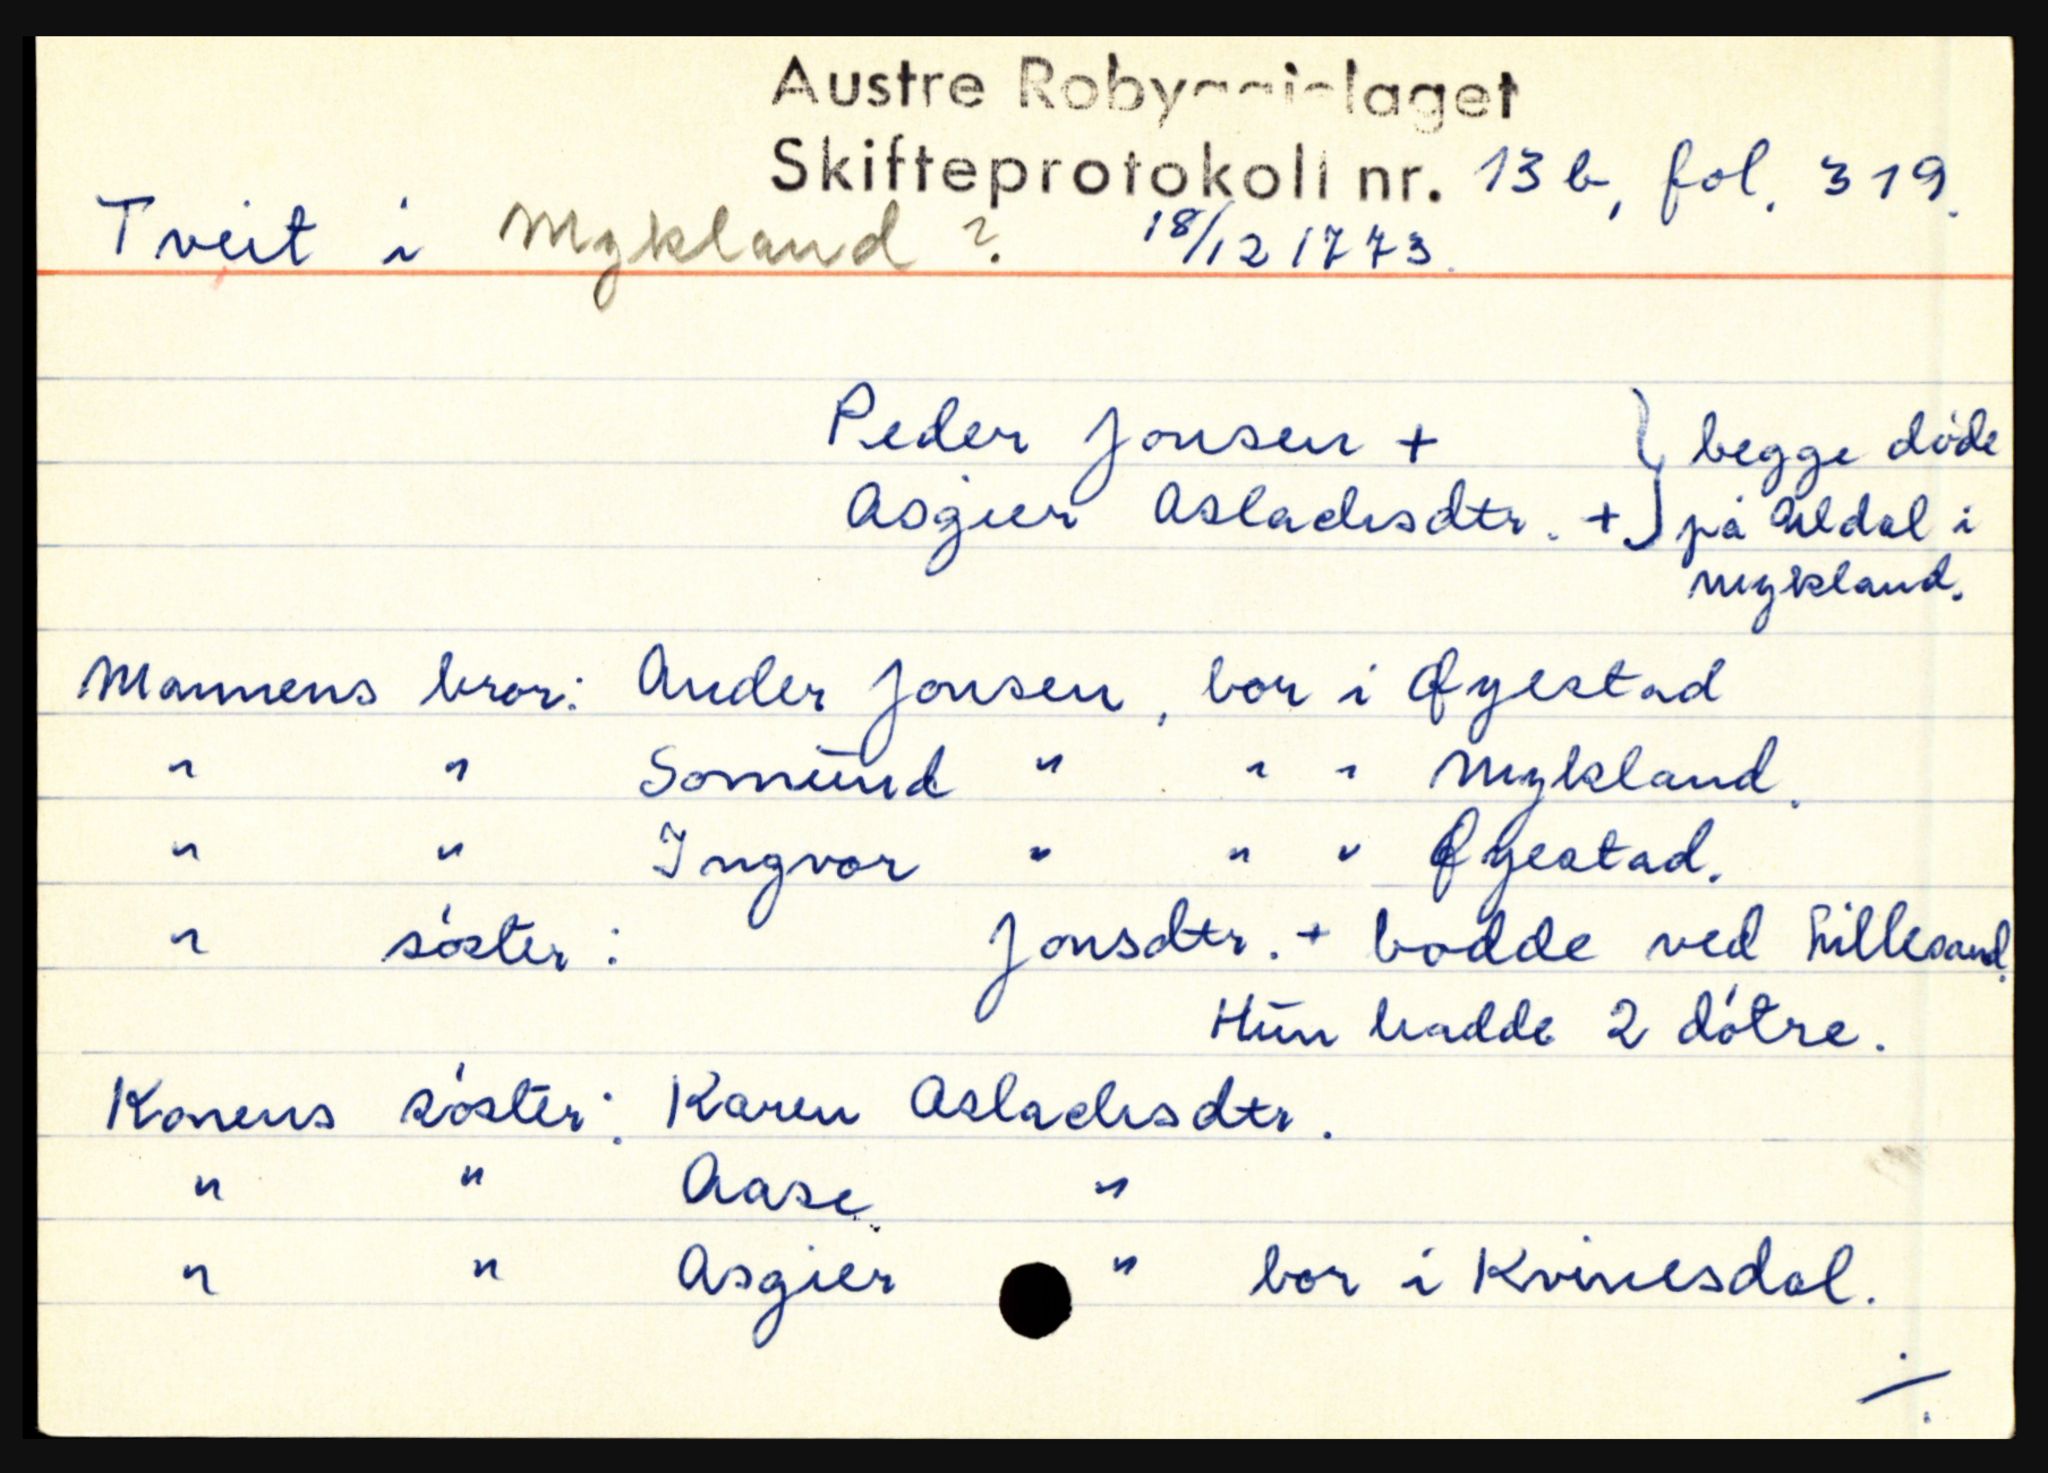 Austre Robyggjelaget
Skifteprotokoll nr. 13 b, fol. 319.
Tveit i Mykland ? 18/12 1773.
Peder Jonsen + } begge døde
Asgier Aslachsdtr. + } på Uldal i
Mykland.
Mannens bror: Ander Jonsen, bor i Øyestad
" " Somund " " " Mykland.
" " Ingvor " " " Øyestad.
" søster: Jonsdtr. + bodde ved Lillesand.
Hun hadde 2 døtre.
Konens søster: Karen Aslachsdtr.
" " Aase "
" " Asgier " bor i Kvinesdal.
./.